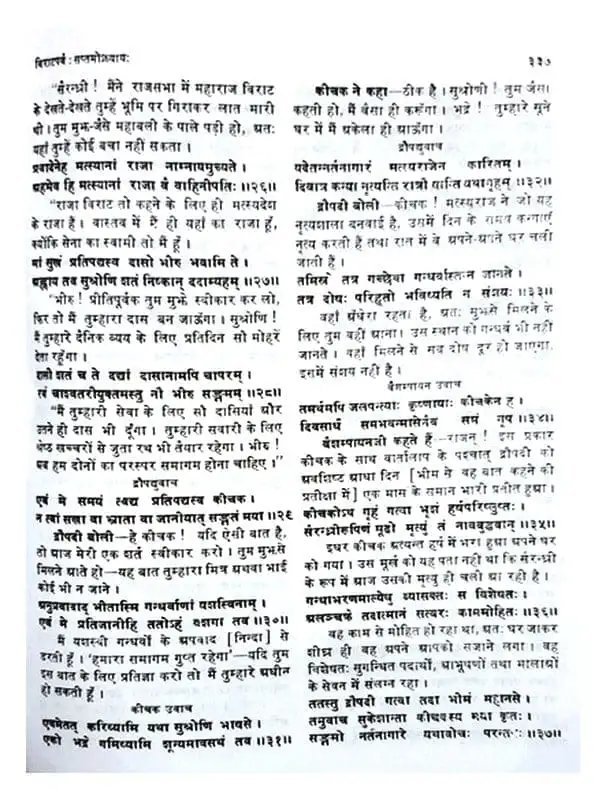 विराटपर्व : सप्तमोऽध्यायः
३३७
"सैरन्ध्री ! मैंने राजसभा में महाराज विराट
के देखते-देखते तुम्हें भूमि पर गिराकर लात मारी
थी । तुम मुझ-जैसे महाबली के पाले पड़ी हो, अतः
यहाँ तुम्हें कोई बचा नहीं सकता ।
प्रवादेनेह मत्स्यानां राजा नाम्नायमुच्यते ।
अहमेव हि मत्स्यानां राजा वै वाहिनीपतिः ॥२६॥
"राजा विराट तो कहने के लिए ही मत्स्यदेश
के राजा हैं । वास्तव में मैं ही यहाँ का राजा हूँ,
क्योंकि सेना का स्वामी तो मैं हूँ ।
मां सुखं प्रतिपद्यस्व दासो भीरु भवामि ते ।
अह्नाय तव सुश्रोणि शतं निष्कान् ददाम्यहम् ॥२७॥
"भीरु ! प्रीतिपूर्वक तुम मुझे स्वीकार कर लो,
फिर तो मैं तुम्हारा दास बन जाऊँगा । सुश्रोणि !
मैं तुम्हारे दैनिक व्यय के लिए प्रतिदिन सौ मोहरें
देता रहूँगा ।
दासी शतं च ते दद्यां दासानामपि चापरम् ।
रथं चाश्वतरीयुक्तमस्तु नौ भीरु सङ्गमम् ॥२८॥
"मैं तुम्हारी सेवा के लिए सौ दासियाँ और
उतने ही दास भी दूँगा । तुम्हारी सवारी के लिए
श्रेष्ठ खच्चरों से जुता रथ भी तैयार रहेगा । भीरु !
अब हम दोनों का परस्पर समागम होना चाहिए ।"
द्रौपद्युवाच
एवं मे समयं त्वद्य प्रतिपद्यस्व कीचक ।
न त्वां सखा वा भ्राता वा जानीयात् सङ्गतं मया ॥२९
द्रौपदी बोली—हे कीचक ! यदि ऐसी बात है,
तो आज मेरी एक शर्त स्वीकार करो । तुम मुझसे
मिलने आते हो—यह बात तुम्हारा मित्र अथवा भाई
कोई भी न जाने ।
अनुप्रवादाद् भीतास्मि गन्धर्वाणां यशस्विनाम् ।
एवं मे प्रतिजानीहि ततोऽहं वशगा तव ॥३०॥
मैं यशस्वी गन्धर्वों के अपवाद [निन्दा] से
डरती हूँ । 'हमारा समागम गुप्त रहेगा'—यदि तुम
इस बात के लिए प्रतिज्ञा करो तो मैं तुम्हारे अधीन
हो सकती हूँ ।
कीचक उवाच
एवमेतत् करिष्यामि यथा सुश्रोणि भाषसे ।
एको भद्रे गमिष्यामि शून्यमावसथं तव ॥३१॥
कीचक ने कहा—ठीक है । सुश्रोणी ! तुम जैसा
कहती हो, मैं वैसा ही करूँगा । भद्रे ! तुम्हारे सूने
घर में मैं अकेला ही आऊँगा ।
द्रौपद्युवाच
यदेतन्नर्तनागारं मत्स्यराजेन कारितम् ।
दिवात्र कन्या नृत्यन्ति रात्रौ यान्ति यथागृहम् ॥३२॥
द्रौपदी बोली—कीचक ! मत्स्यराज ने जो यह
नृत्यशाला बनवाई है, उसमें दिन के समय कन्याएँ
नृत्य करती हैं तथा रात में वे अपने-अपने घर चली
जाती हैं ।
तमिस्रे तत्र गच्छेथा गन्धर्वास्तन्न जानते ।
तत्र दोषः परिहृतो भविष्यति न संशयः ॥३३॥
वहाँ अँधेरा रहता है, अतः मुझसे मिलने के
लिए तुम वहीं आना । उस स्थान को गन्धर्व भी नहीं
जानते । वहाँ मिलने से सब दोष दूर हो जाएगा,
इसमें संशय नहीं है ।
वैशम्पायन उवाच
तमर्थमपि जल्पन्त्याः कृष्णायाः कीचकेन ह ।
दिवसार्धं समभवन्मासेनैव समं नृप ॥३४॥
वैशम्पायनजी कहते हैं—राजन् ! इस प्रकार
कीचक के साथ वार्तालाप के पश्चात् द्रौपदी को
अवशिष्ट आधा दिन [भीम से वह बात कहने की
प्रतीक्षा में] एक मास के समान भारी प्रतीत हुआ ।
कीचकोऽथ गृहं गत्वा भृशं हर्षपरिप्लुतः ।
सैरन्ध्रीरूपिणं मूढो मृत्युं तं नावबुद्धवान् ॥३५॥
इधर कीचक अत्यन्त हर्ष में भरा हुआ अपने घर
को गया । उस मूर्ख को यह पता नहीं था कि सैरन्ध्री
के रूप में आज उसकी मृत्यु ही चली आ रही है ।
गन्धाभरणमाल्येषु व्यासक्तः स विशेषतः ।
अलञ्चक्रे तदात्मानं सत्वरः काममोहितः ॥३६॥
वह काम से मोहित हो रहा था, अतः घर जाकर
शीघ्र ही वह अपने आपको सजाने लगा । वह
विशेषतः सुगन्धित पदार्थों, आभूषणों तथा मालाओं
के सेवन में संलग्न रहा ।
ततस्तु द्रौपदी गत्वा तदा भीमं महानसे ।
तमुवाच सुकेशान्ता कीचकस्य मया कृतः ।
सङ्गमो नर्तनागारे यथावोचः परन्तप ॥३७॥